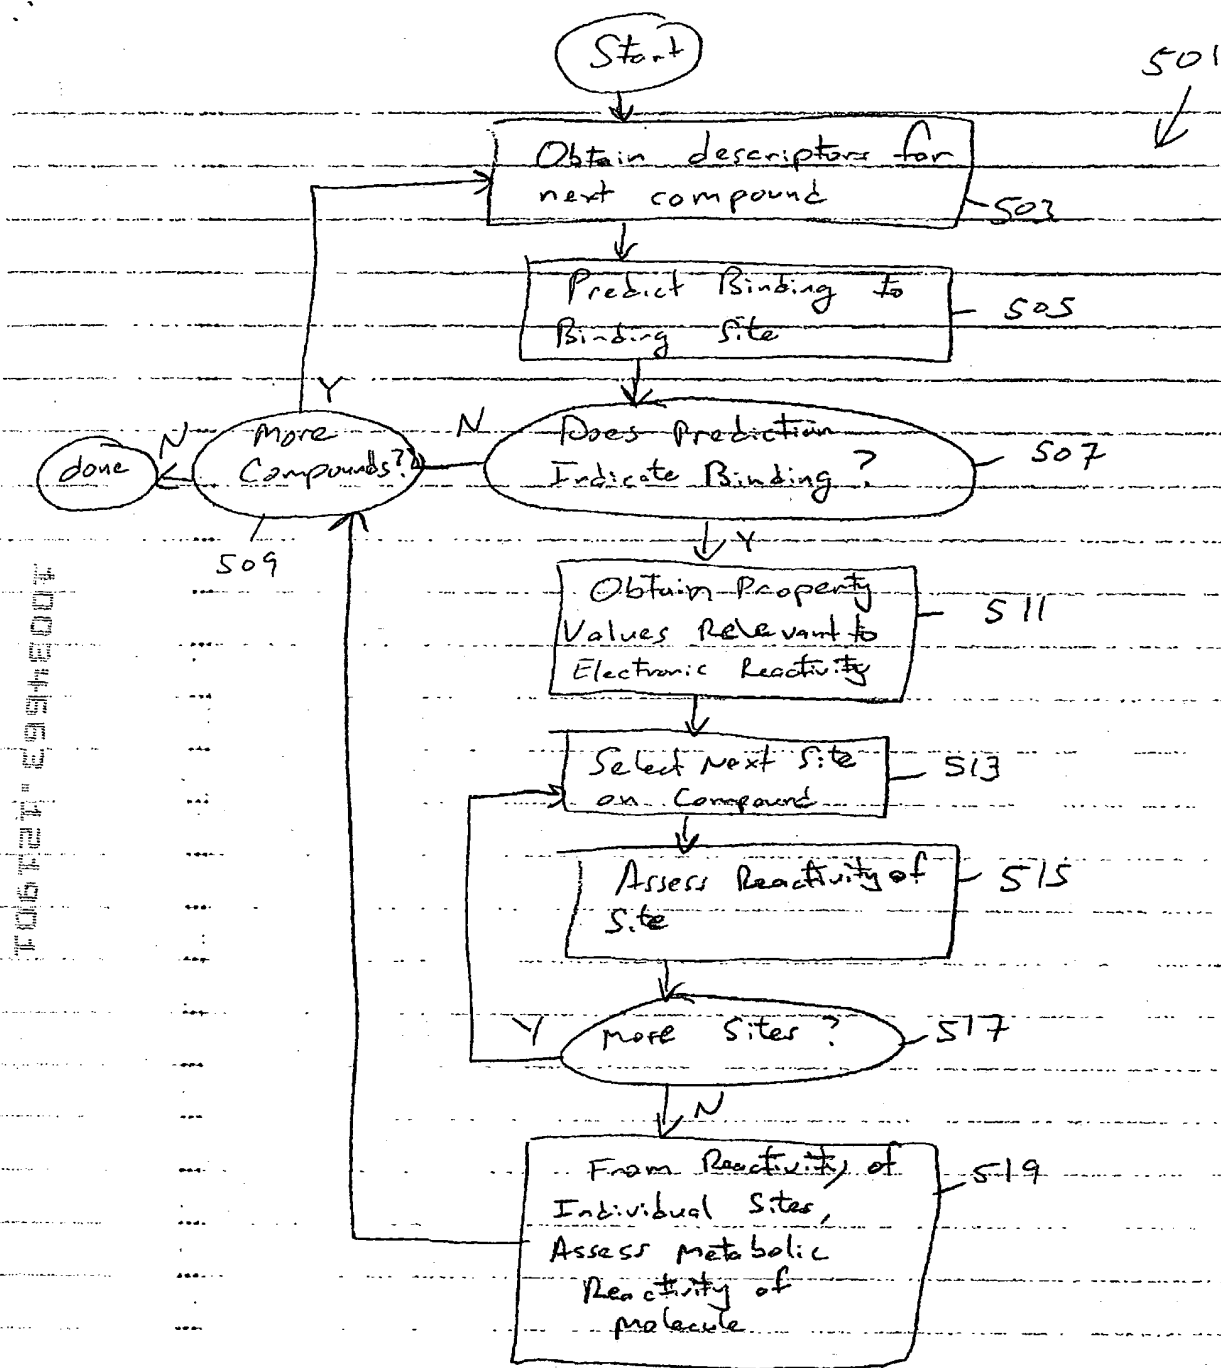 Start
501
Obtain descriptors for
next compound
503
Predict Binding to
Binding Site
505
Y
N
done
More
Compounds?
N
Does Prediction
Indicate Binding?
507
509
Y
Obtain Property
Values Relevant to
Electronic Reactivity
511
Select Next Site
on Compound
513
Assess Reactivity of
Site
515
Y
More Sites?
517
N
From Reactivity of
Individual Sites,
Assess Metabolic
Reactivity of
Molecule
519
10034563.121901